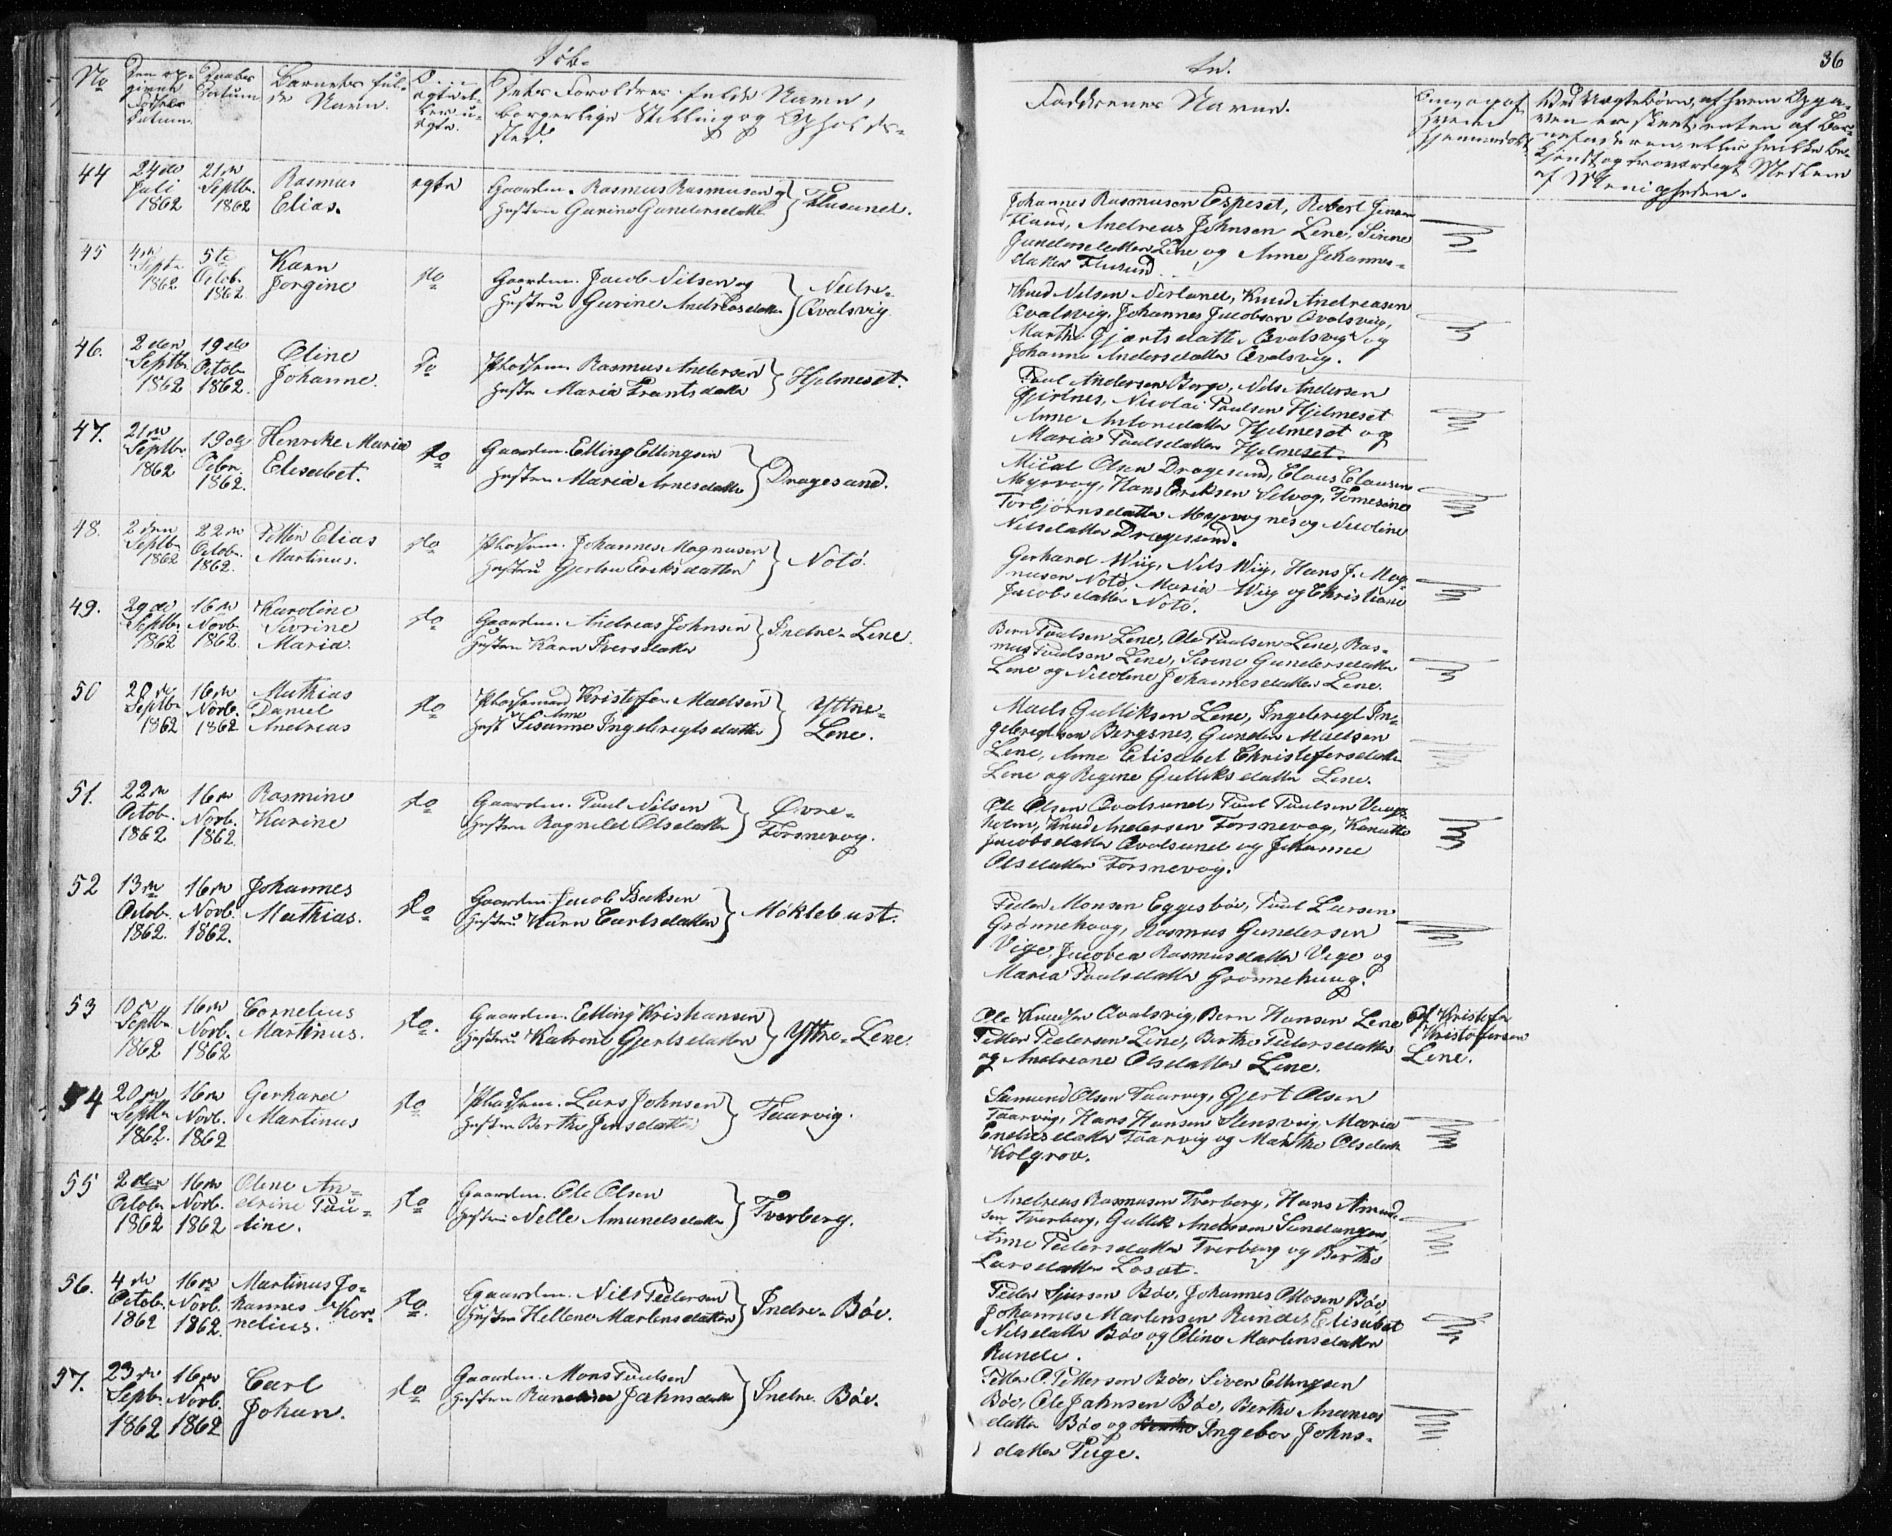 Døb-
te.
36
No
Den op-
givne
Fødsels
Datum.
Daabs
Datum
Barnets ful-
de Navn.
egte el-
ler u-
egte.
Dets Foreldres fulde Navn,
borgerlige Stilling og Opholds-
sted.
Faddrenes Navne.
hjemmedøbt
Ved uægte børn, af hvem Opga-
ven er skeet, enten af Bar-
nefaderen, eller hvilke be-
kjendt og troværdigt Medlem
af Menigheden.
44
24de
Juli
1862
21n
Septbr.
1862
Rasmus
Elias.
egte
Gaardm. Rasmus Rasmusen og
Hustru Gurine Gundersdatter
Flusund.
Johannes Rasmusen Espeset, Robert Jensen
Flusund, Andreas Johnsen Lene, Sirene
Gundersdatter Lene og Anne Johannes-
datter Flusund
45
4n
Septr
1862
5te
Octob.
1862
Karn
Jorgine
do
Gaardm. Jacob Nilsen og
Hustru Gurine Andreasdatter
Nedre-
Qvalsvig.
Knud Nilsen Nerland, Knud Andreasen
Qvalsvig, Johannes Jacobsen Qvalsvig,
Marthe Gjærtsdatter Qvalsvig og
Johanne Andersdatter Qvalsvig.
46.
2den
Septbr
1862
19de
Octob
1862.
Oline
Johanne.
do
Pladsem. Rasmus Andersen
Hustr Maria Frantsdatter
Hjelmeset.
Poul Andersen Berge, Nils Andersen
Gjertnes, Nicolai Paulsen Hjelmeset
Anne Antonsdatter Hjelmeset og
Maria Paulsdatter Hjelmeset.
47.
21n
Septbr
1862
19de
Octbr.
1862.
Henrike Maria
Elisabet.
do
Gaardm. Elling Ellingsen
Hustru Maria Arnesdatter
Dragesund.
Mical Olsen Dragesund, Claus Clausen
Myrvog, Hans Eriksen Selvog, Tomesine
Torbjørnsdatter Myrvognes og Nicoline
Nilsdatter Dragesund.
48.
2den
Septbr
1862
22n
Octob.
1862.
Petter Elias
Martinus.
do
Pladsem. Johannes Magnusen
Hustru Gjertru Eriksdatter
Notø.
Gerhard Wiig, Nils Wiig, Hans J. Mag-
nusen Notø, Maria Wiig og Christiane
Jacobsdatter Notø.
49.
29de
Septbr
1862
16n
Novb.
1862.
Karoline
Sivrine
Maria.
do
Gaardm. Andreas Johnsen
Hustru Karn Iversdatter
Indre-Lene
Bern Paulsen Lene, Ole Paulsen Lene, Ras-
mus Paulsen Lene, Sirene Gundersdatter
Lene og Nicoline Johannesdatter Lene.
50
28de
Septbr
1862
16n
Novb.
1862
Mathias
Daniel
Andreas
do
Pladsemand Kristofer Madsen
Anne
Hust Sisanne Ingebregtsdatter
Yttre-
Lene.
Mads Gulliksen Lene, Ingebregt In-
gebregtsen Bergsnes, Gunder Madsen
Lene, Anne Elisabet Christofersdatter
Lene og Regine Gulliksdatter Lene.
51.
22n
Octob.
1862
16n
Novb.
1862.
Rasmine
Karine
do
Gaardm. Paul Nilsen
Hustru Ragnild Olsdatter
Øvre-
Torsnevog.
Ole Olsen Qvalsund, Paul Paulsen Vaage-
holm, Knud Andersen Torsnevog, Kanutte
Jacobsdatter Qvalsund og Johanne
Olsdatter Torsnevog.
52
13n
Octob.
1862.
16n
Novb.
1862.
Johannes
Mathias.
do
Gaardm. Jacob Isaksen
Hustru Karn Carlsdatter
Møklebust.
Peder Monsen Eggesbøe, Poul Larsen
Grønnehaug, Rasmus Gundersen
Vige, Jacobea Rasmusdatter Vige og
Maria Paulsdatter Grønnehaug.
53
10n
Septbr
1862
16n
Novb.
1862
Cornelius
Martinus.
do.
Gaardm. Elling Kristiansen
Hustru Katrine Gjertsdatter
Yttre-Lene
Ole Knudsen Qvalsvig, Bern Hansen Lene
Petter Pedersen Lene, Berthe Pedersdatter
og Andreane Olsdatter Lene.
Af Kristofer
Kristofersen
Lene.
54
20n
Septbr
1862.
16n
Novb.
1862
Gerhard
Martinus
do
Pladsem. Lars Johnsen
Hustru Berthe Jensdatter
Taarvig.
Samund Olsen Taarvig, Gjert Olsen
Taarvig, Hans Hansen Stensvig, Maria
Endresdatter Taarvig og Marthe Olsdatter
Kolgrov.
55
2den
Octobr
1862
16n
Novb.
1862
Oline An-
drine Pau-
line.
do
Gaardm. Ole Olsen
Hustru Nelle Amundsdatter
Tverberg.
Andreas Rasmusen Tverberg, Hans Amund-
sen Tverberg, Gullik Andersen Sandanger,
Anne Pedersdatter Tverberg og Berthe
Larsdatter Løset.
56.
4de
Octob.
1862
16n
Novb.
1862.
Martinus Jo-
hannes Kor-
nelius.
do.
Gaardm. Nils Pedersen
Hustru Hellene Martensdatter
Indre-Bøe.
Peder Sjursen Bøe, Johannes Olsen Bøe,
Johannes Martensen Runde, Elisabet
Nilsdatter Bøe og Oline Martensdatter
Runde.
57.
23n
Sepb.
1862
16n
Novb.
1862
Carl
Johan.
do
Gaardm. Mons Paulsen
Hustru Johnsdatter
Indre Bøe.
Peder P. Pettersen Bøe, Siver Ellingsen
Bøe, Ole Johnsen Bøe, Berthe Ananias
datter Bøe og Ingebor Johns-
datter Teige.